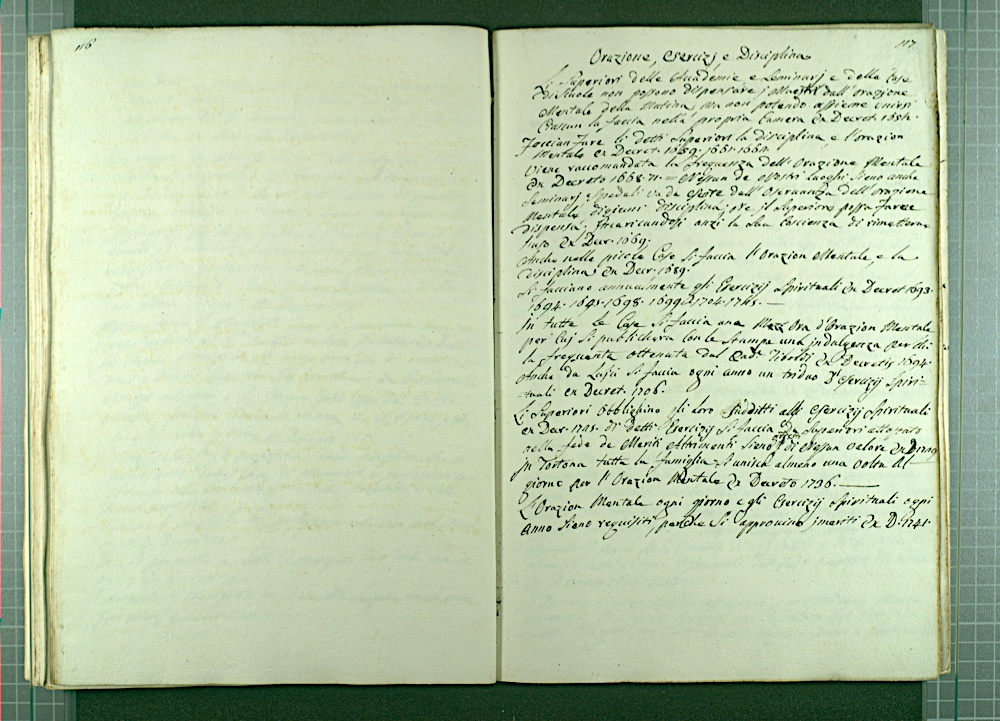 116
117
Orazione, Esercizj e Disciplina
Li Superiori delle Accademie e Seminarj e delle Case
di Scuole non possono dispensare i Maestri dall'orazione
Mentale della Mattina, ma non potendo assieme unirsi
Ciascun la faccia nella propria Camera Ex Decret. 1654.
Faccian fare li detti Superiori la disciplina e l'orazion
Mentale ex Decret. 1659. 1661. 1664.
Viene raccomandata la frequenza dell'Orazione Mentale
Ex Decreto 1668. Nessun de Nostri Luoghi sieno anche
Seminarj, Spedali vada esente dall'Osservanza dell'orazione
Mentale digiuni disciplina, ne il Superiore possa farne
Dispensa, Incaricandosi anzi la sua Coscienza di
Ex Decr. 1669.
Anche nelle picole Case si faccia l'Orazion Mentale, e la
disciplina Ex Decr. 1689.
Si facciano annualmente gli Esercizij Spirituali Ex Decret 1693.
1694. 1695. 1698. 1699. 1704.
In tutte le Case si faccia una Mezz'Ora d'Orazion Mentale
per Cuj si publicherà con le Stampe una indulgenza per chi
la frequenta ottenuta dal Ex Decretis 1694
Anche da Laici si faccia ogni anno un triduo d'Esercizij Spiri-
tuali ex Decret. 1706.
Li Superiori Obblighino gli loro Sudditti alli Esercizij Spirituali
ex Decr. di detti Esercizij si faccia da Superiori
nella fede de Meriti Altrimenti sieno di Nessun valore Ex D.
In Tortona tutta la famiglia si unisca almeno una volta al
giorno per l'Orazion Mentale Ex Decreto 1736.
L'Orazion Mentale ogni giorno e gli Esercizij Spirituali ogni
Anno sieno requisiti, perche si approvino i meriti Ex D. 1741.